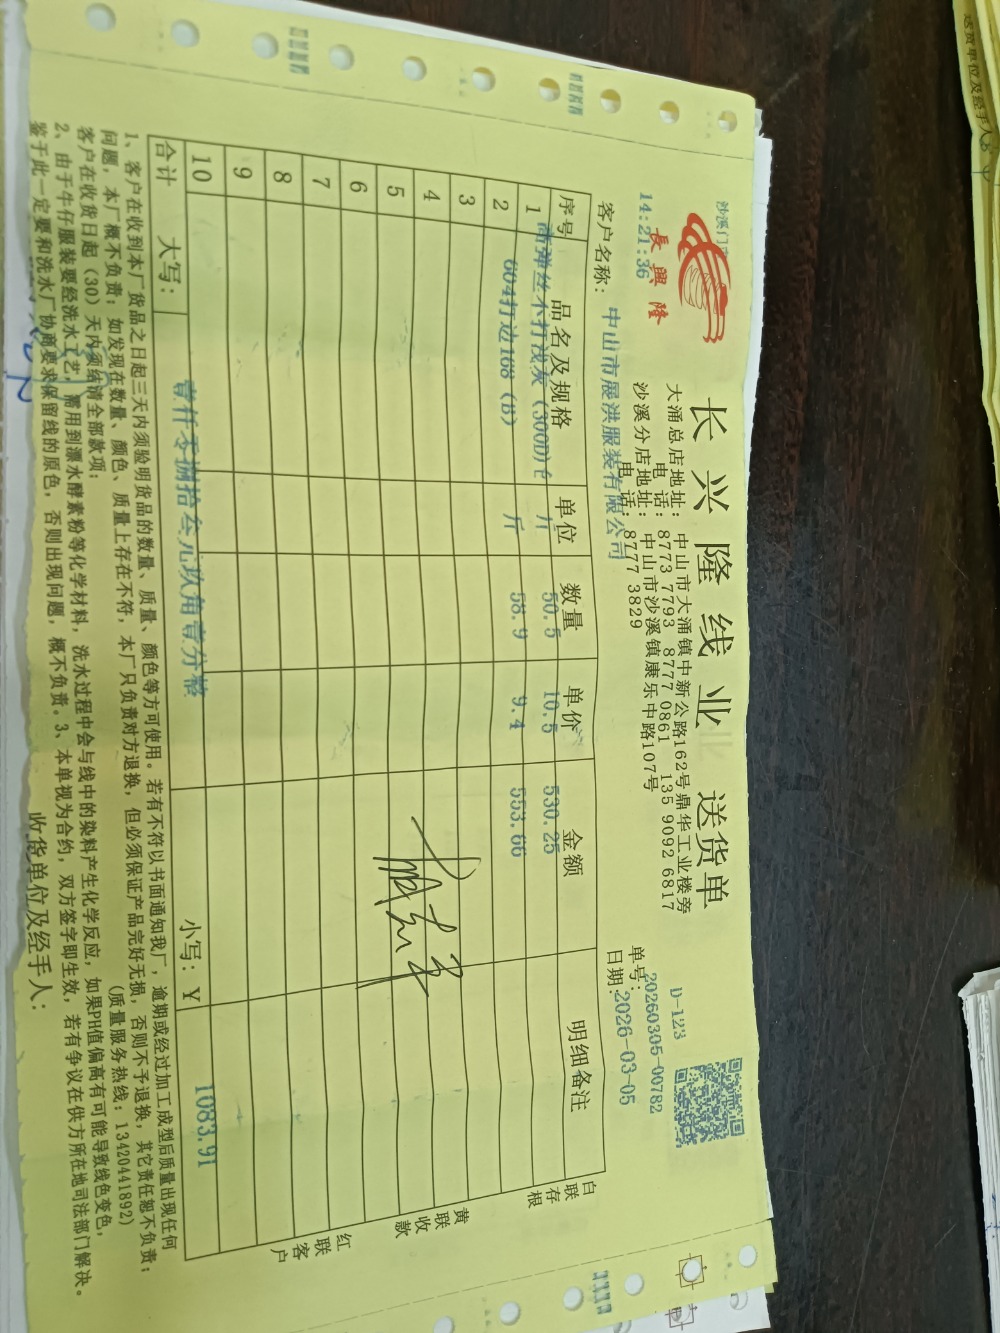 沙溪门市
長興隆
14:21:36
长兴隆线业 送货单
大涌总店地址: 中山市大涌镇中新公路162号鼎华工业楼旁
电 话: 8773 7793 8777 0861 135 9092 6817
沙溪分店地址: 中山市沙溪镇康乐中路107号
电 话: 8777 3829
D-123
单号: 20260305-00782
客户名称: 中山市展洪服装有限公司
日期: 2026-03-05
序号 品名及规格 单位 数量 单价 金额 明细备注
1 高弹丝不打浅灰(300D)仓 斤 50.5 10.5 530.25
2 604打边168 (B) 斤 58.9 9.4 553.66
3
4
5
6
7
8
9
10
合计 大写: 壹仟零捌拾叁元玖角壹分整 小写: ¥ 1083.91
白联存根
黄联收款
红联客户
1、客户在收到本厂货品之日起三天内须验明货品的数量、质量、颜色等方可使用。若有不符以书面通知我厂，逾期或经过加工成型后质量出现任何
问题，本厂概不负责；如发现在数量、颜色、质量上存在不符，本厂只负责对方退换，但必须保证产品完好无损，否则不予退换，其它责任恕不负责；
客户在收货日起（30）天内须结清全部款项； (质量服务热线: 13420441892)
2、由于牛仔服装要经洗水工艺，需用到漂水酵素粉等化学材料，洗水过程中会与线中的染料产生化学反应，如果PH值偏高有可能导致线色变色，
鉴于此一定要和洗水厂协商要求保留线的原色，否则出现问题，概不负责。3、本单视为合约，双方签字即生效，若有争议在供方所在地司法部门解决。
收货单位及经手人:
送货单位及经手人